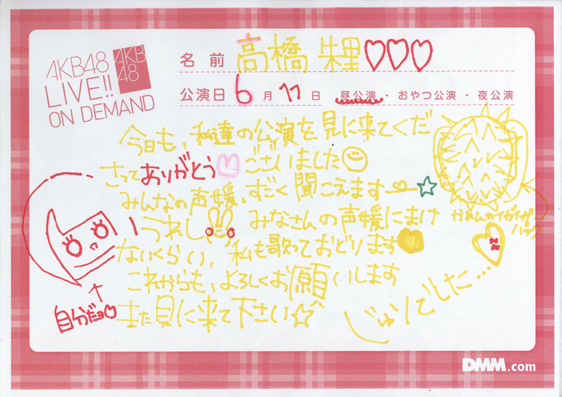 AKB48
LIVE!!
ON DEMAND
AKB
48
名前 高橋朱里♡♡♡
公演日 6月11日 昼公演・おやつ公演・夜公演
今日も、私達の公演を見に来てくだ
さってありがとう♡ございました
みんなの声援、すごく聞こえます
うれし みなさんの声援にまけ
ないくらい、私も歌っておどります
これからも、よろしくお願いします
また見に来て下さい☆
自分だョ
じゅりでした…
DMM.com